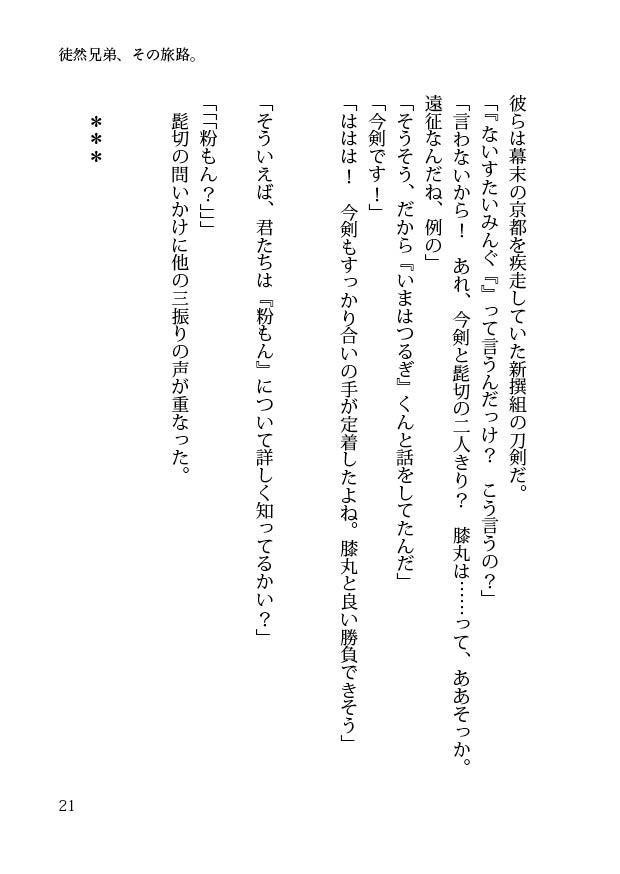 徒然兄弟、その旅路。
彼らは幕末の京都を疾走していた新撰組の刀剣だ。
「『ないすたいみんぐ『』って言うんだっけ？　こう言うの？」
「言わないから！　あれ、今剣と髭切の二人きり？　膝丸は……って、ああそっか。
遠征なんだね、例の」
「そうそう、だから『いまはつるぎ』くんと話をしてたんだ」
「今剣です！」
「ははは！　今剣もすっかり合いの手が定着したよね。膝丸と良い勝負できそう」
「そういえば、君たちは『粉もん』について詳しく知ってるかい？」
「「「粉もん？」」」
髭切の問いかけに他の三振りの声が重なった。
＊＊＊
21